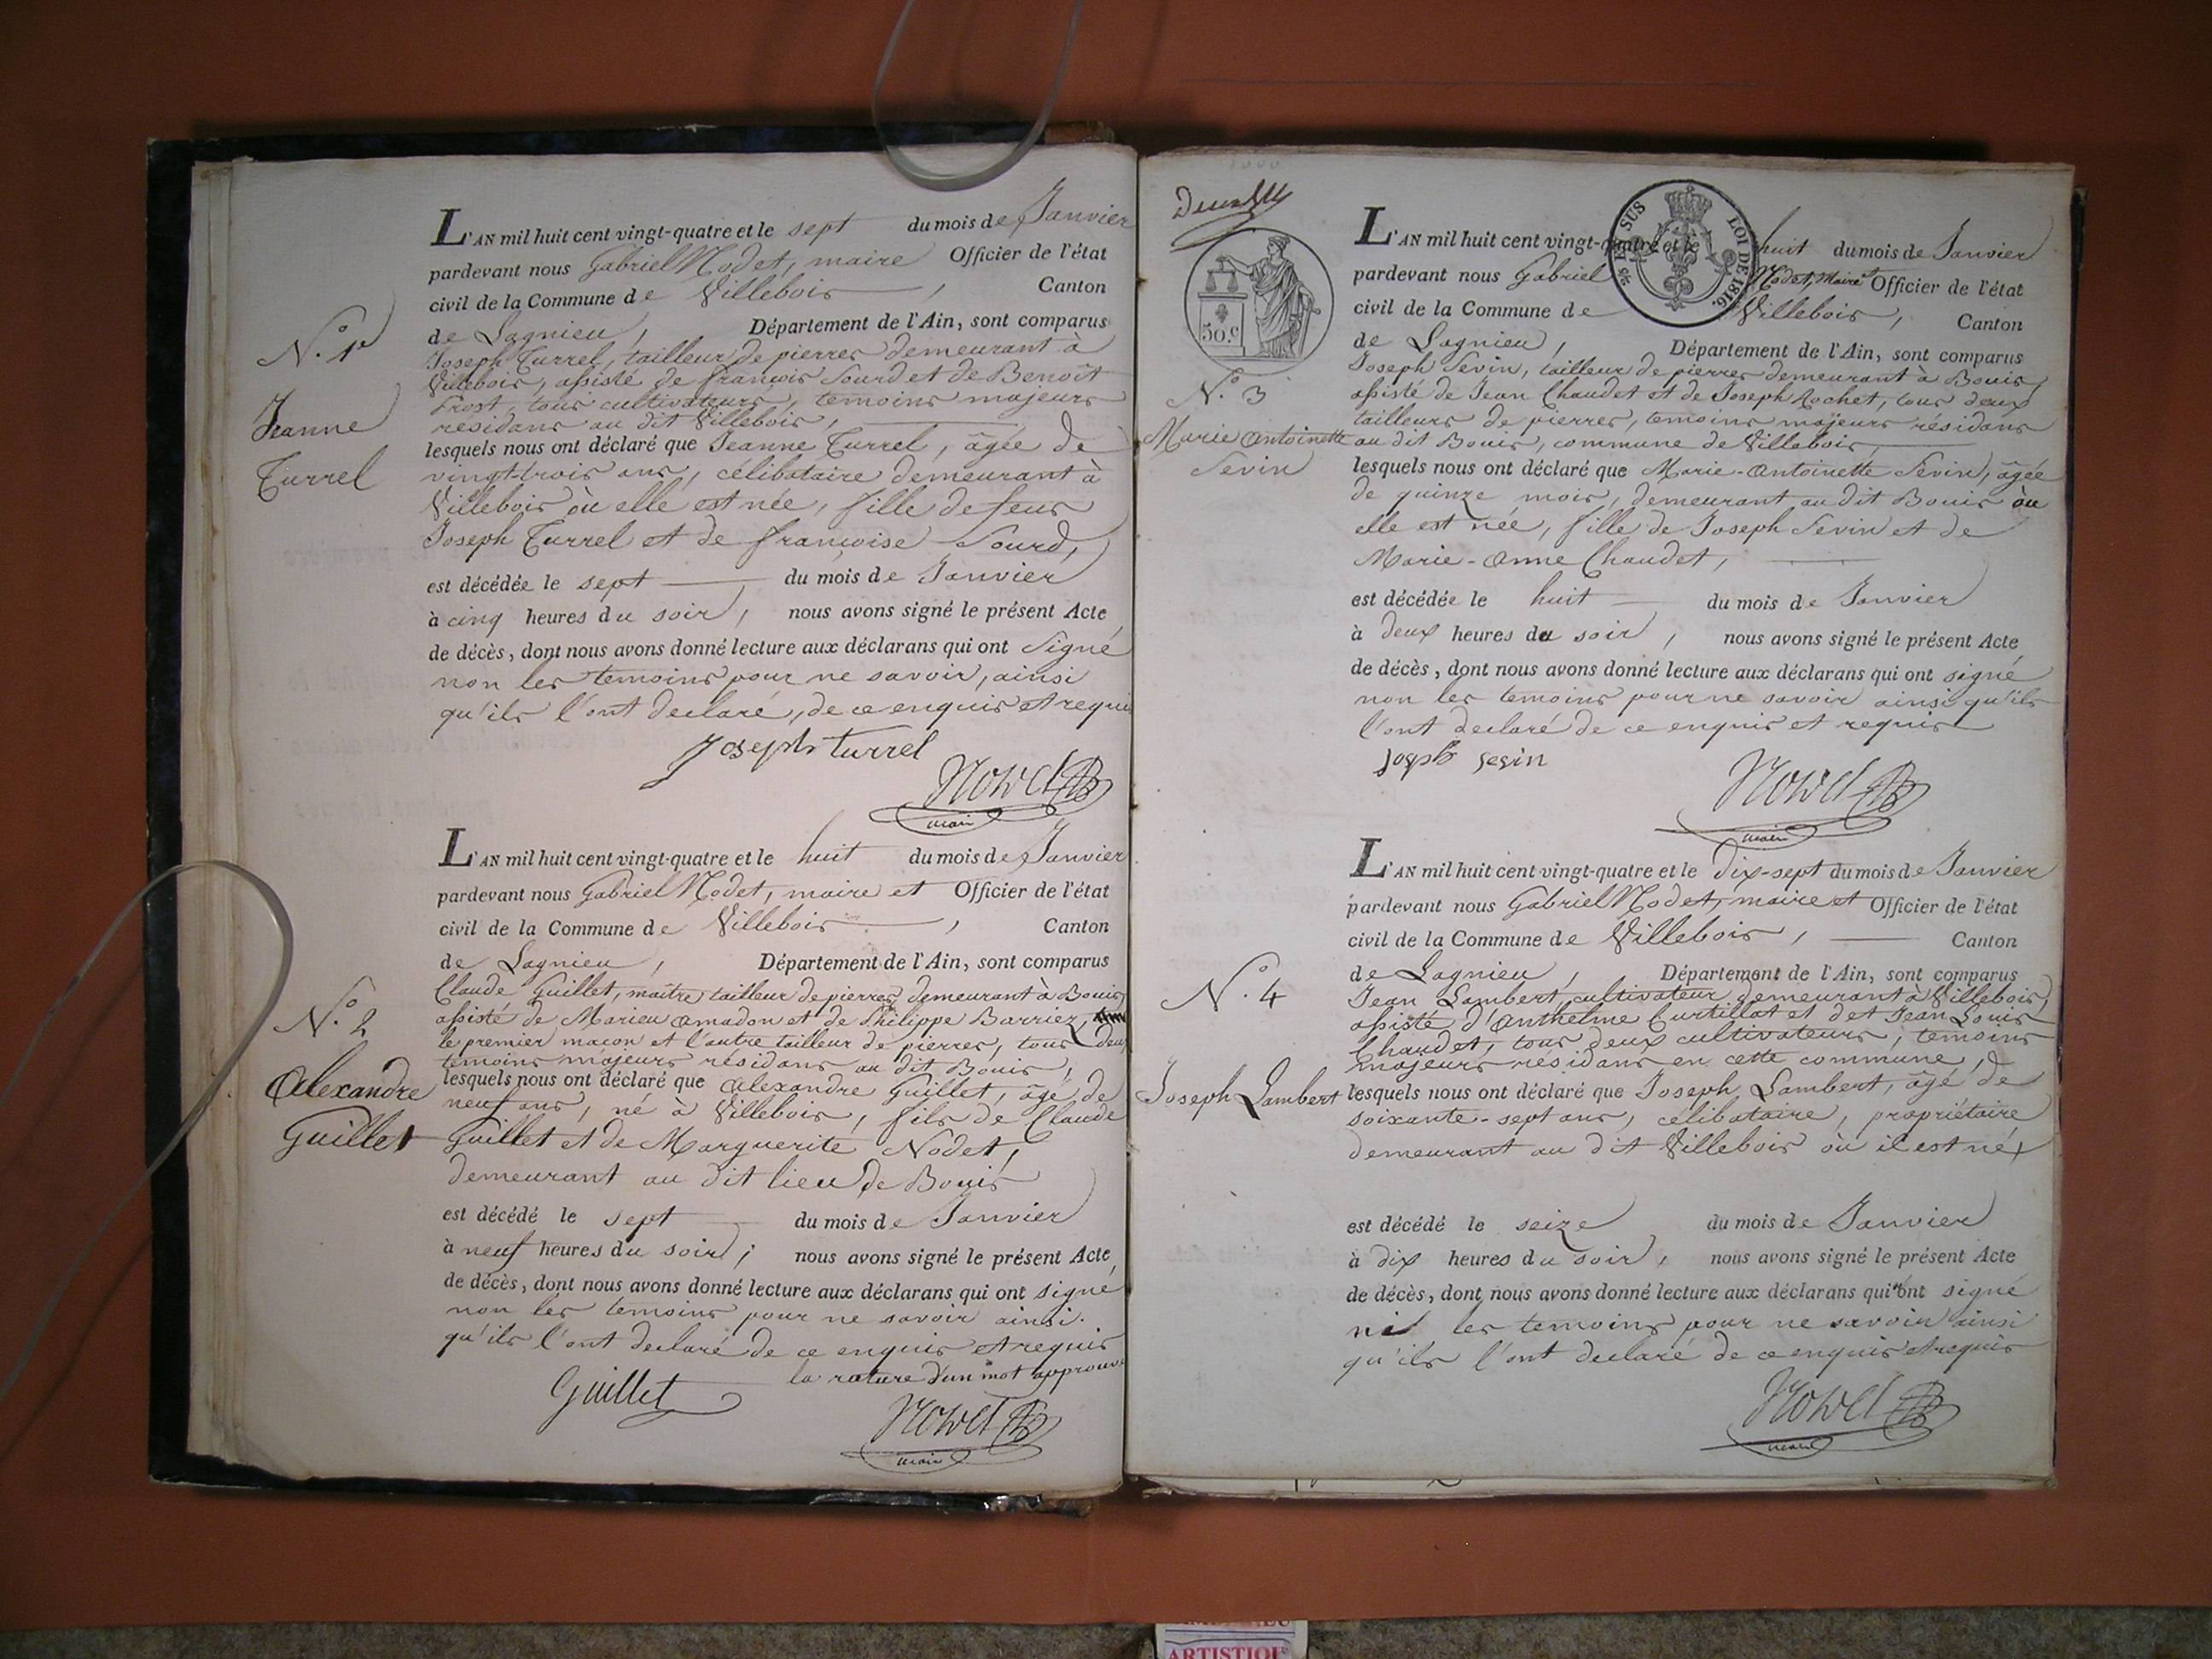 L'AN mil huit cent vingt-quatre et le sept du mois de Janvier
pardevant nous Gabriel Nodet, maire Officier de l'état
civil de la Commune de Villebois, Canton
de Lagnieu, Département de l'Ain, sont comparus
N.o 1er
Joseph Turrel, tailleur de pierres demeurant à
Villebois, assisté de françois Sourd et de Benoît
Prost, tous cultivateurs, temoins majeurs
résidans au dit Villebois,
Jeanne
Turrel
lesquels nous ont déclaré que Jeanne Turrel, âgée de
vingt-trois ans, célibataire demeurant à
Villebois où elle est née, fille de feu
Joseph Turrel et de françoise Sourd,
est décédée le sept du mois de Janvier
à cinq heures du soir, nous avons signé le présent Acte
de décès, dont nous avons donné lecture aux déclarans qui ont signé
non les temoins pour ne savoir, ainsi
qu'ils l'ont declaré, de ce enquis et requis
Joseph turrel
Nodet
maire
L'AN mil huit cent vingt-quatre et le huit du mois de Janvier
pardevant nous Gabriel Nodet, maire et Officier de l'état
civil de la Commune de Villebois, Canton
de Lagnieu, Département de l'Ain, sont comparus
N.o 2
Claude Guillet, maître tailleur de pierres demeurant à Bouis,
assisté de Marieu Amadon et de Philippe Barrier,
le premier maçon et l'autre tailleur de pierres, tous deux
temoins majeurs résidans au dit Bouis,
Alexandre
Guillet
lesquels nous ont déclaré que Alexandre Guillet, âgé de
neuf ans, né à Villebois, fils de Claude
Guillet et de Marguerite Nodet,
demeurant au dit lieu de Bouis
est décédé le sept du mois de Janvier
à neuf heures du soir; nous avons signé le présent Acte
de décès, dont nous avons donné lecture aux déclarans qui ont signé
non les temoins pour ne savoir ainsi
qu'ils l'ont declaré de ce enquis et requis
la rature d'un mot approuvé
Guillet
Nodet
maire
50.c
EN SUS LOI DE 1816.
L'AN mil huit cent vingt-quatre et le huit du mois de Janvier
pardevant nous Gabriel Nodet, Maire et Officier de l'état
civil de la Commune de Villebois, Canton
de Lagnieu, Département de l'Ain, sont comparus
N.o 3
Joseph Sevin, tailleur de pierres demeurant à Bouis,
assisté de Jean Chaudet et de Joseph Rochet, tous deux
tailleurs de pierres, temoins majeurs résidans
au dit Bouis, commune de Villebois,
Marie Antoinette
Sevin
lesquels nous ont déclaré que Marie-Antoinette Sevin, âgée
de quinze mois, demeurant au dit Bouis où
elle est née, fille de Joseph Sevin et de
Marie-Anne Chaudet,
est décédée le huit du mois de Janvier
à deux heures du soir, nous avons signé le présent Acte
de décès, dont nous avons donné lecture aux déclarans qui ont signé
non les temoins pour ne savoir ainsi qu'ils
l'ont declaré de ce enquis et requis
Joseph sevin
Nodet
maire
L'AN mil huit cent vingt-quatre et le dix-sept du mois de Janvier
pardevant nous Gabriel Nodet, maire et Officier de l'état
civil de la Commune de Villebois, Canton
de Lagnieu, Département de l'Ain, sont comparus
N.o 4
Jean Lambert, cultivateur, demeurant à Villebois,
assisté d'Anthelme Curtillat et de Jean Louis
Chaudet, tous deux cultivateurs, temoins
majeurs résidans en cette commune,
Joseph Lambert
lesquels nous ont déclaré que Joseph Lambert, âgé de
soixante-sept ans, célibataire, propriétaire
demeurant au dit Villebois où il est né,
est décédé le seize du mois de Janvier
à dix heures du soir, nous avons signé le présent Acte
de décès, dont nous avons donné lecture aux déclarans qui n'ont signé
ni les temoins pour ne savoir ainsi
qu'ils l'ont declaré de ce enquis et requis
Nodet
maire